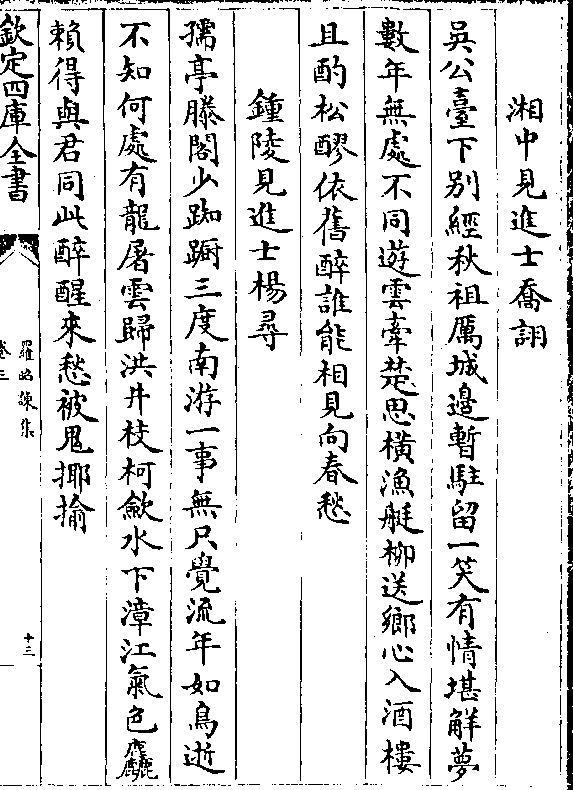 湘中見進士喬詡
吳公臺下别經秋祖厲城邊暫駐留一笑有情堪解夢
數年無處不同遊雲牽楚思橫漁艇柳送鄉心入酒樓
且酌松醪依舊醉誰能相見向春愁
鍾陵見進士楊尋
孺亭滕閣少踟蹰三度南游一事無只覺流年如鳥逝
不知何處有龍屠雲歸洪井枝柯斂水下漳江氣色麤
賴得與君同此醉醒來愁被鬼揶揄
欽定四庫全書
羅昭諫集
卷三
十三